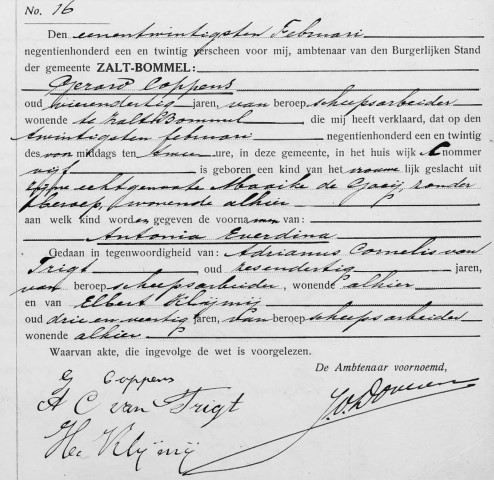 No. 16
Den eenentwintigsten Februari
negentienhonderd een en twintig verscheen voor mij, ambtenaar van den Burgerlijken Stand
der gemeente ZALT-BOMMEL:
Gerard Coppens
oud vierendertig jaren, van beroep scheepsarbeider
wonende te Zaltbommel die mij heeft verklaard, dat op den
twintigsten februari negentienhonderd een en twintig
des voormiddags ten twee ure, in deze gemeente, in het huis wijk nommer
vijf is geboren een kind van het vrouwelijk geslacht uit
zijne echtgenoote Maaike de Gooij, zonder
beroep, wonende alhier
aan welk kind worden gegeven de voornamen van:
Antonia Everdina
Gedaan in tegenwoordigheid van: Adrianus Cornelis van
Trigt oud zesendertig jaren,
van beroep scheepsarbeider, wonende alhier
en van Elbert Klijnij
oud drie en veertig jaren, van beroep scheepsarbeider
wonende alhier
Waarvan akte, die ingevolge de wet is voorgelezen.
De Ambtenaar voornoemd,
G Coppens
A C van Trigt
Klijnij